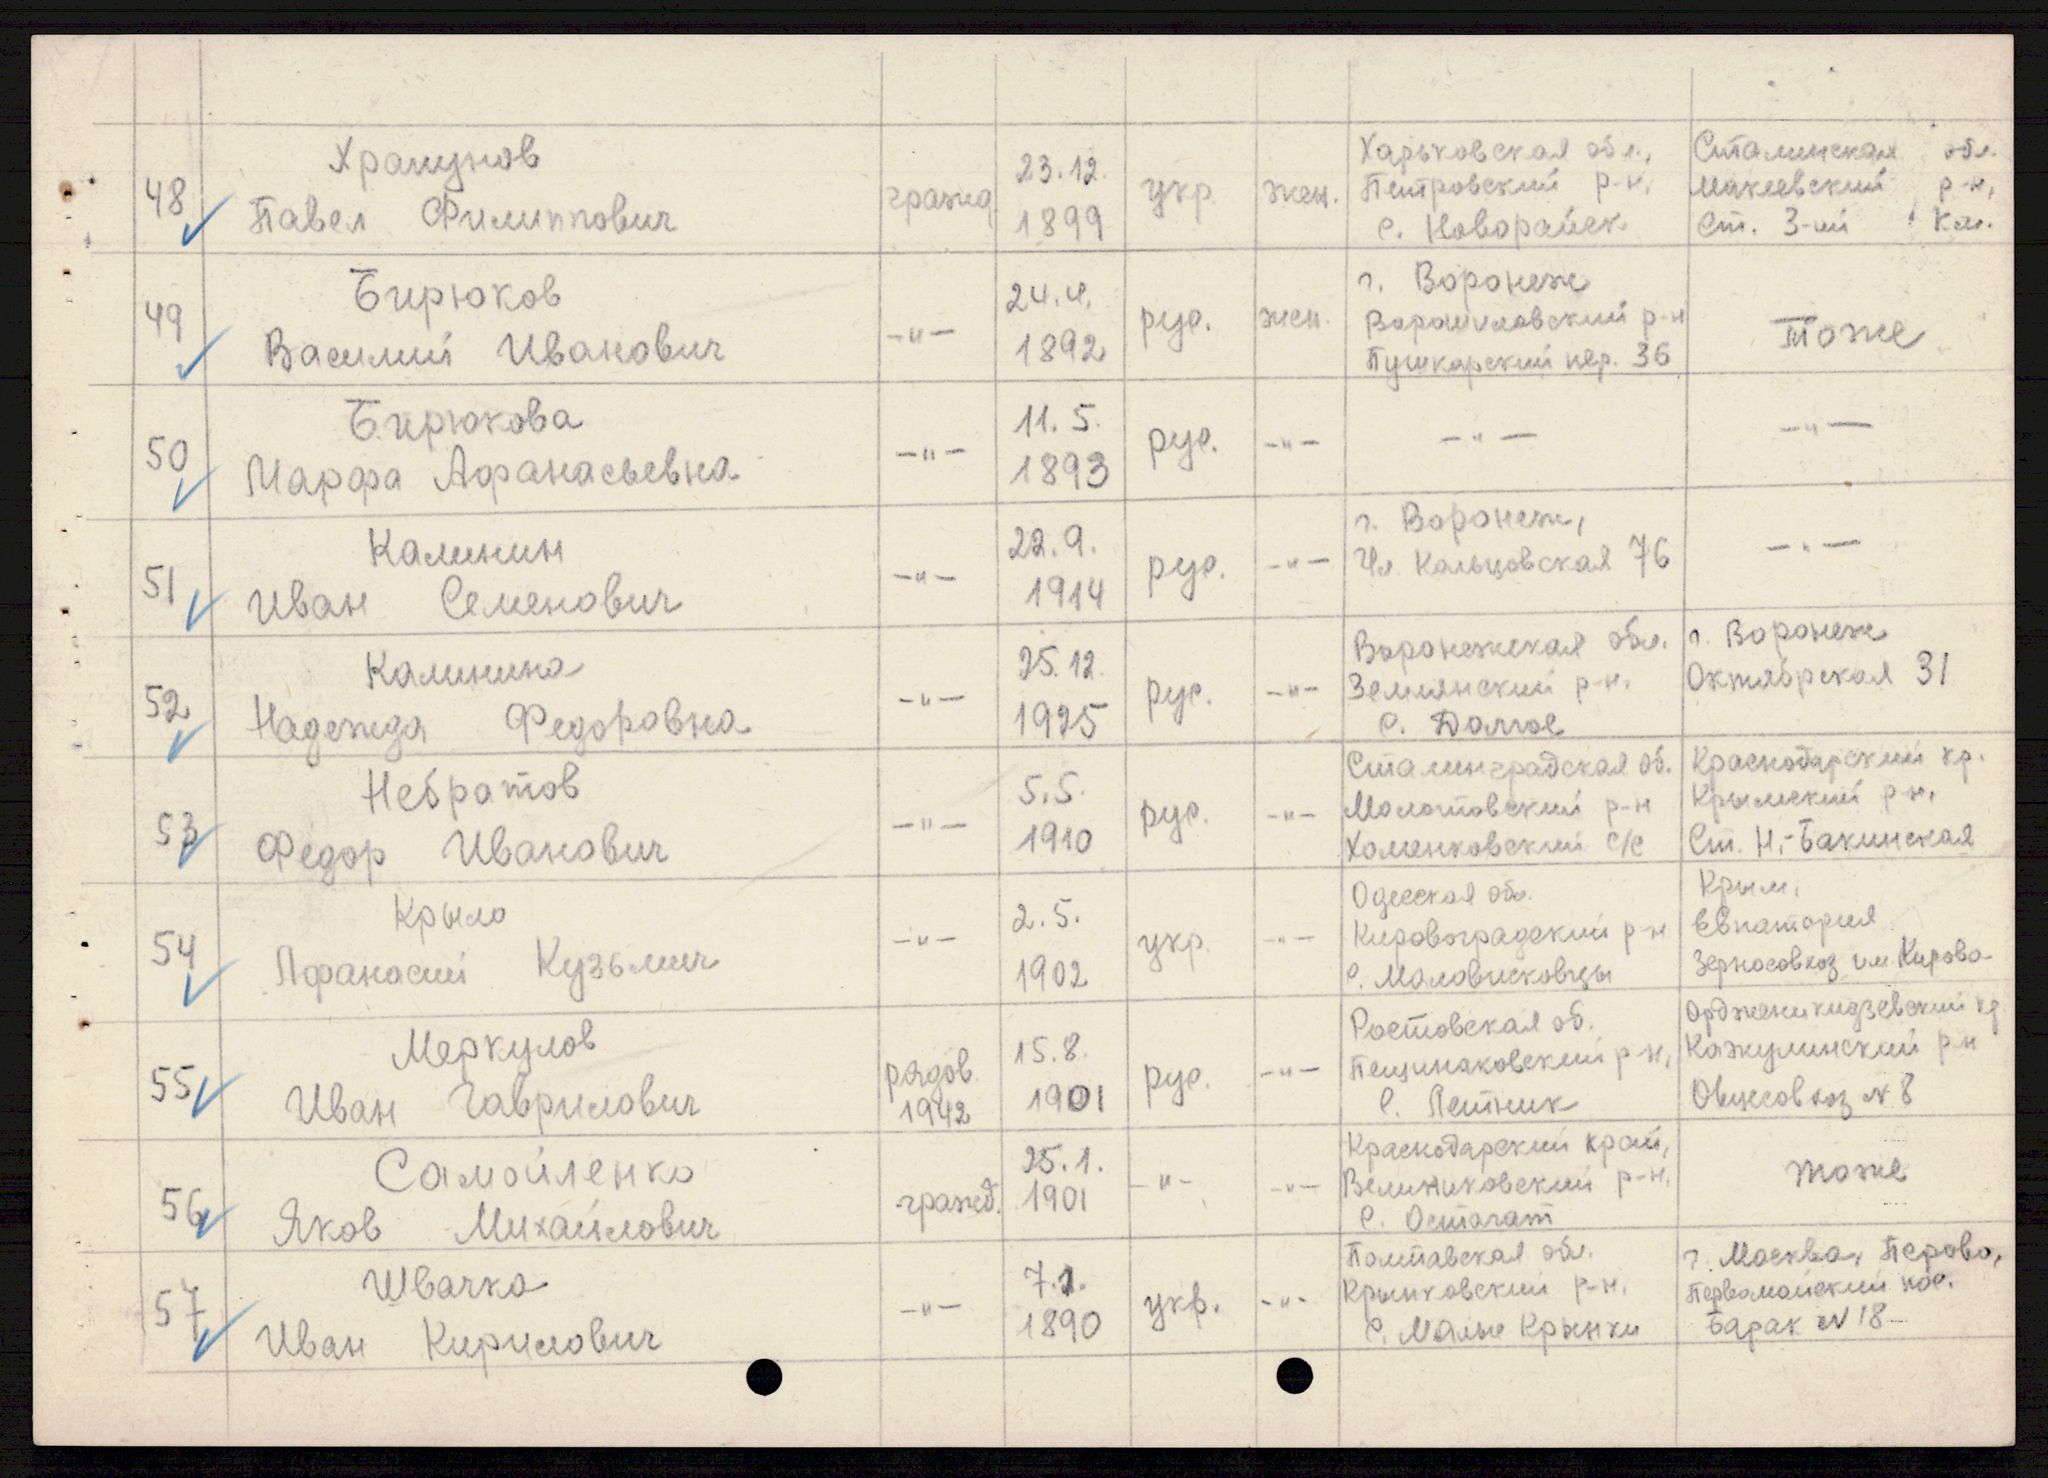 48
Храпунов
Павел Филиппович
гражд
23.12.
1899
укр.
жен.
Харьковская обл.,
Петровский р-н,
с. Новорайск
Сталинская обл.
Макеевский р-н,
Ст. 3-ий км.
49
Бирюков
Василий Иванович
-"-
24.4.
1892
рус.
жен.
г. Воронеж
Ворошиловский р-н
Пушкарский пер. 36
Тоже
50
Бирюкова
Марфа Афанасьевна
-"-
11.5.
1893
рус.
-"-
-"-
-"-
51
Калинин
Иван Семенович
-"-
22.9.
1914
рус.
-"-
г. Воронеж,
Ул. Кольцовская 76
-"-
52
Калинина
Надежда Федоровна
-"-
25.12.
1925
рус.
-"-
Воронежская обл.
Землянский р-н.
с. Долгое
г. Воронеж
Октябрская 31
53
Небратов
Федор Иванович
-"-
5.5.
1910
рус.
-"-
Сталинградская об.
Молотовский р-н
Хоменковский с/с
Краснодарский кр.
Крымский р-н,
Ст. Н.-Бакинская
54
Крыло
Афанасий Кузьмич
-"-
2.5.
1902
укр.
-"-
Одесская обл.
Кировоградский р-н
с. Маловисковцы
Крым,
Евпатория
Зерносовхоз им Кирова
55
Меркулов
Иван Гаврилович
рядов.
1942
15.8.
1901
рус.
-"-
Ростовская об.
Пещинаковский р-н,
с. Летник
Орджени кидзевский кр
Кажулинский р-н
Овцесовхоз № 8
56
Самойленко
Яков Михайлович
гражд.
25.1.
1901
-"-
-"-
Краснодарский край,
Величковский р-н.
с. Остагат
тоже
57
Швачко
Иван Кирилович
-"-
7.1.
1890
укр.
-"-
Полтавская обл.
Крынковский р-н.
с. Малые Крынки
г. Москва, Перово,
Первомайский пос.
Барак № 18